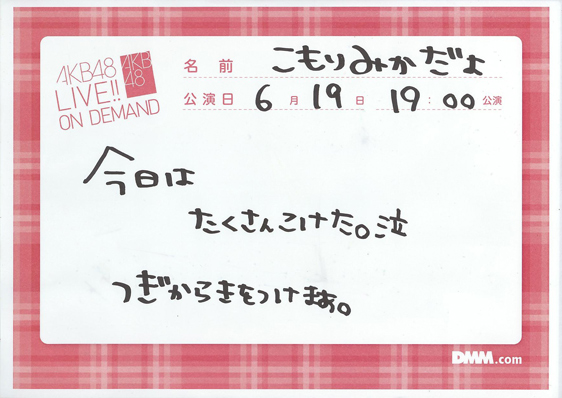 AKB48
LIVE!!
ON DEMAND
AKB
48
名前 こもりみかだよ
公演日 6月19日 19:00公演
今日は
たくさんこけた。泣
つぎからきをつけまぁ。
DMM.com